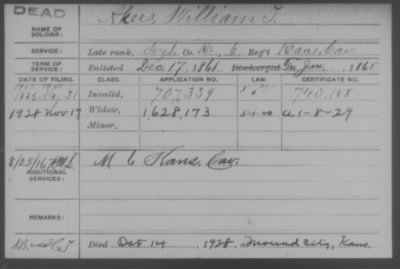 DEAD
NAME OF SOLDIER: Akers, William T.
SERVICE: Late rank, Sergt. Co. 6 Reg't Kans. Cav.
TERM OF SERVICE: Enlisted Dec. 17, 1861 Discharged Jan. 1865
DATE OF FILING. CLASS. APPLICATION NO. LAW. CERTIFICATE NO.
31 Invalid, 707,339 740.188
1928 Nov 17 Widow, 1,628,173 5-1-20 a 1-8-29
Minor,
8/25/16
ADDITIONAL SERVICES: M 6 Kans. Cav.
REMARKS:
Died Oct 14, 1928, Mound City, Kans.